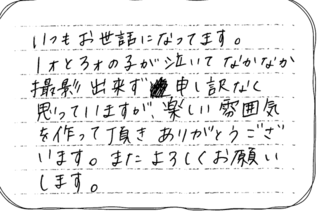 いつもお世話になってます。
1才と3才の子が泣いてなかなか
撮影出来ず申し訳なく
思っていますが、楽しい雰囲気
を作って頂きありがとうござ
います。またよろしくお願い
します。